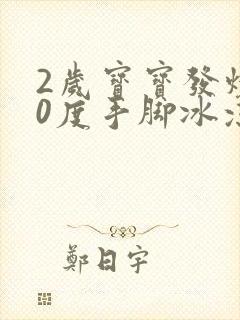 2歲寶寶發燒
0度手腳冰冷
鄭日宇